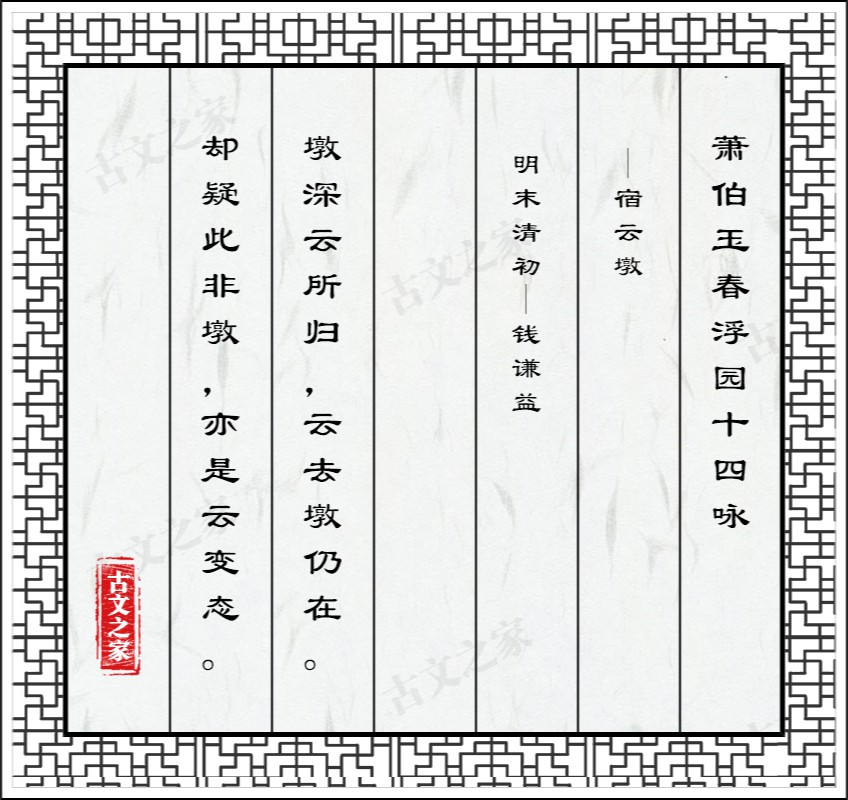 萧伯玉春浮园十四咏
—宿云墩
明末清初—钱谦益
墩深云所归，云去墩仍在。
却疑此非墩，亦是云变态。
古文之家
古文之家
古文之家
古文之家
古文之家